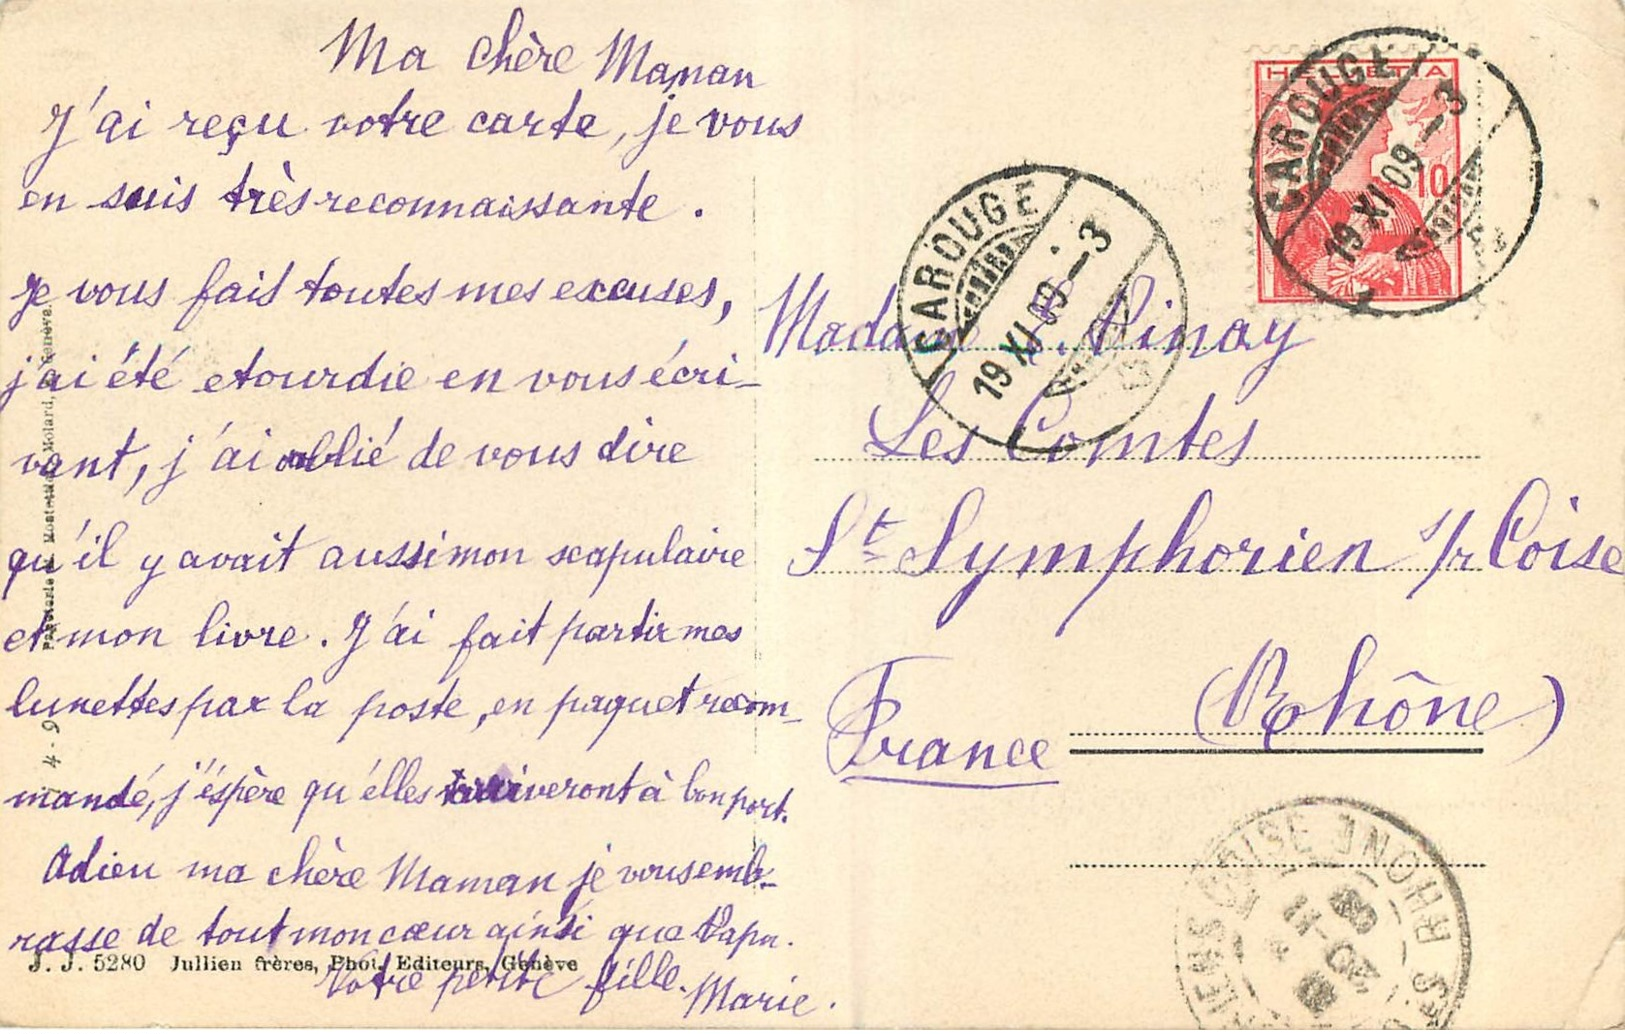 Ma chère Maman
J'ai reçu votre carte, je vous
en suis très reconnaissante.
Je vous fais toutes mes excuses,
j'ai été etourdie en vous écri-
vant, j'ai oublié de vous dire
qu'il y avait aussi mon scapulaire
et mon livre. J'ai fait partir mes
lunettes par la poste, en paquet recom-
mandé, j'éspère qu'élles arriveront à bon port.
Adieu ma chère Maman je vous emb-
rasse de tout mon cœur ainsi que Papa.
Votre petite fille. Marie.
J. J. 5280 Jullien frères, Phot. Editeurs, Genève
Molard, Genève.
4 - 9
HELVETIA
10
CAROUGE
19 XI 09 - 3
CAROUGE
19 XI 09 - 3
Madame Pinay
Les Comtes
St Symphorien s/r Coise
(Rhône)
France
COISE RHONE
20 - 11
09